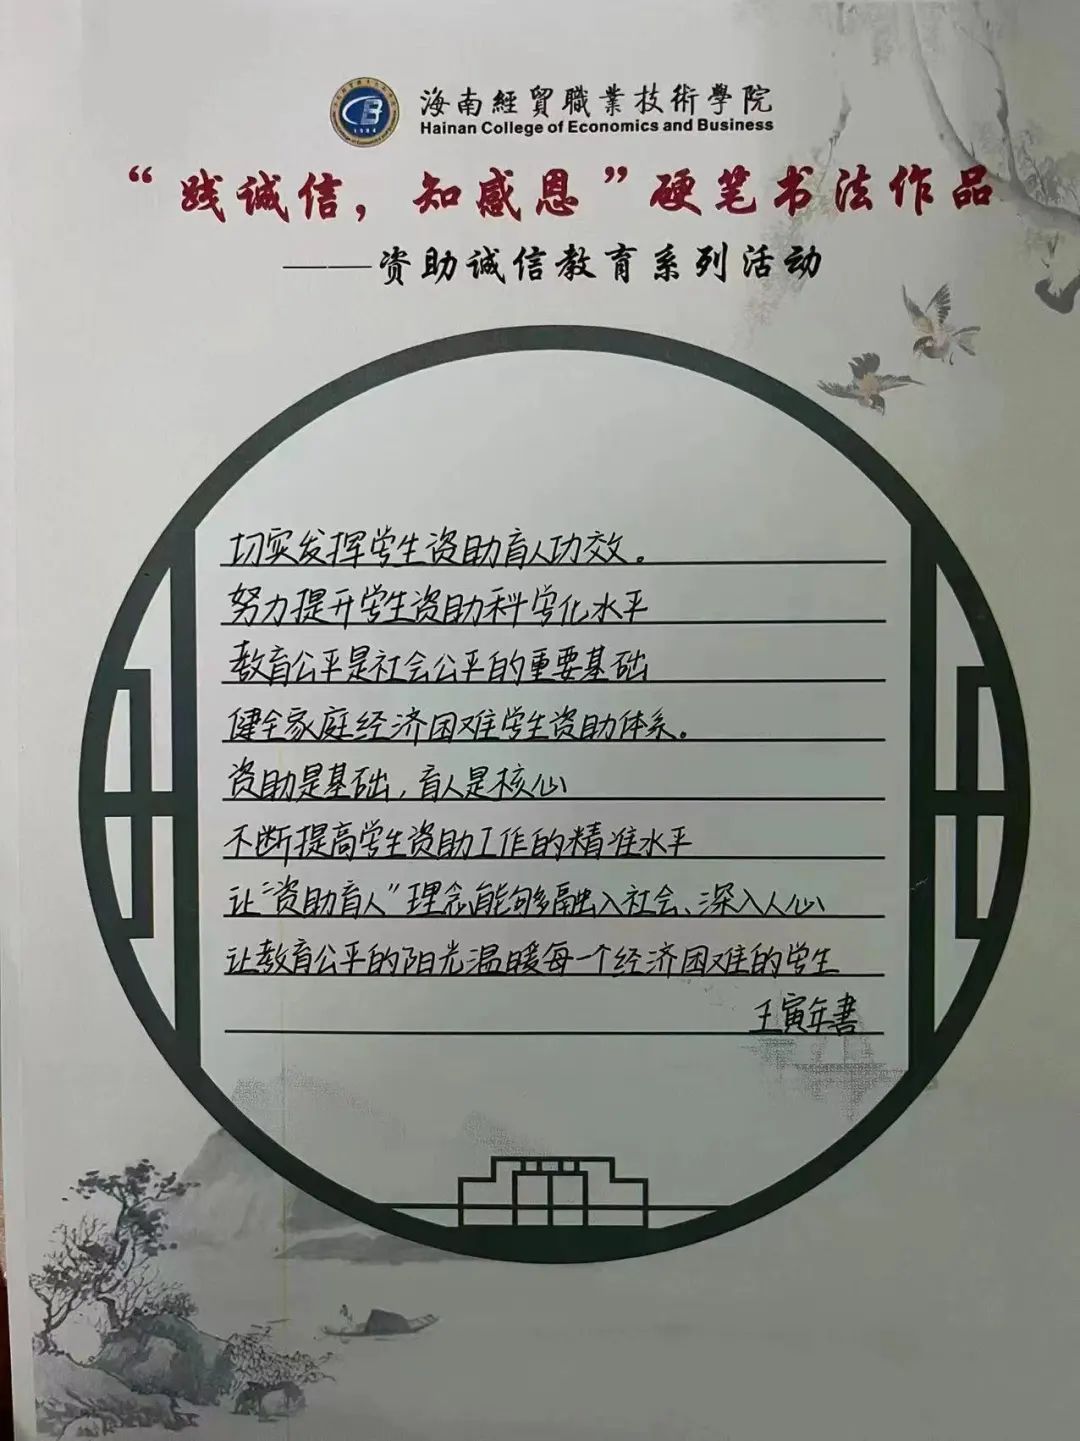 海南經貿職業技術學院
Hainan College of Economics and Business
“践诚信，知感恩”硬笔书法作品
——资助诚信教育系列活动
切实发挥学生资助育人功效。
努力提升学生资助科学化水平
教育公平是社会公平的重要基础
健全家庭经济困难学生资助体系。
资助是基础，育人是核心
不断提高学生资助工作的精准水平
让“资助育人”理念能够融入社会、深入人心
让教育公平的阳光温暖每一个经济困难的学生
壬寅年書